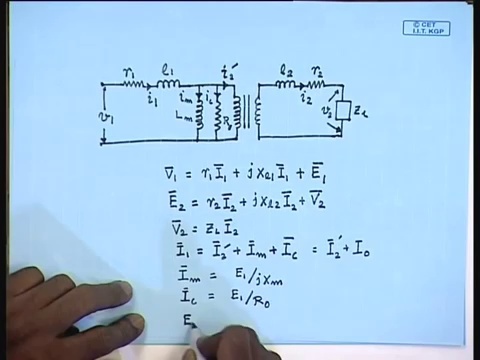 © CET
I.I.T. KGP
r₁ l₁ i₂′ l₂ r₂
v₁ i₁ i_m i_c L_m R_0 i₂ v₂ Z_L
V̄₁ = r₁ Ī₁ + j x_l1 Ī₁ + Ē₁
Ē₂ = r₂ Ī₂ + j x_l2 Ī₂ + V̄₂
V̄₂ = Z_L Ī₂
Ī₁ = Ī₂′ + Ī_m + Ī_c = Ī₂′ + Ī₀
Ī_m = E₁/jx_m
Ī_c = E₁/R₀
E